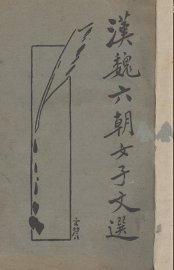 漢魏六朝女子文選